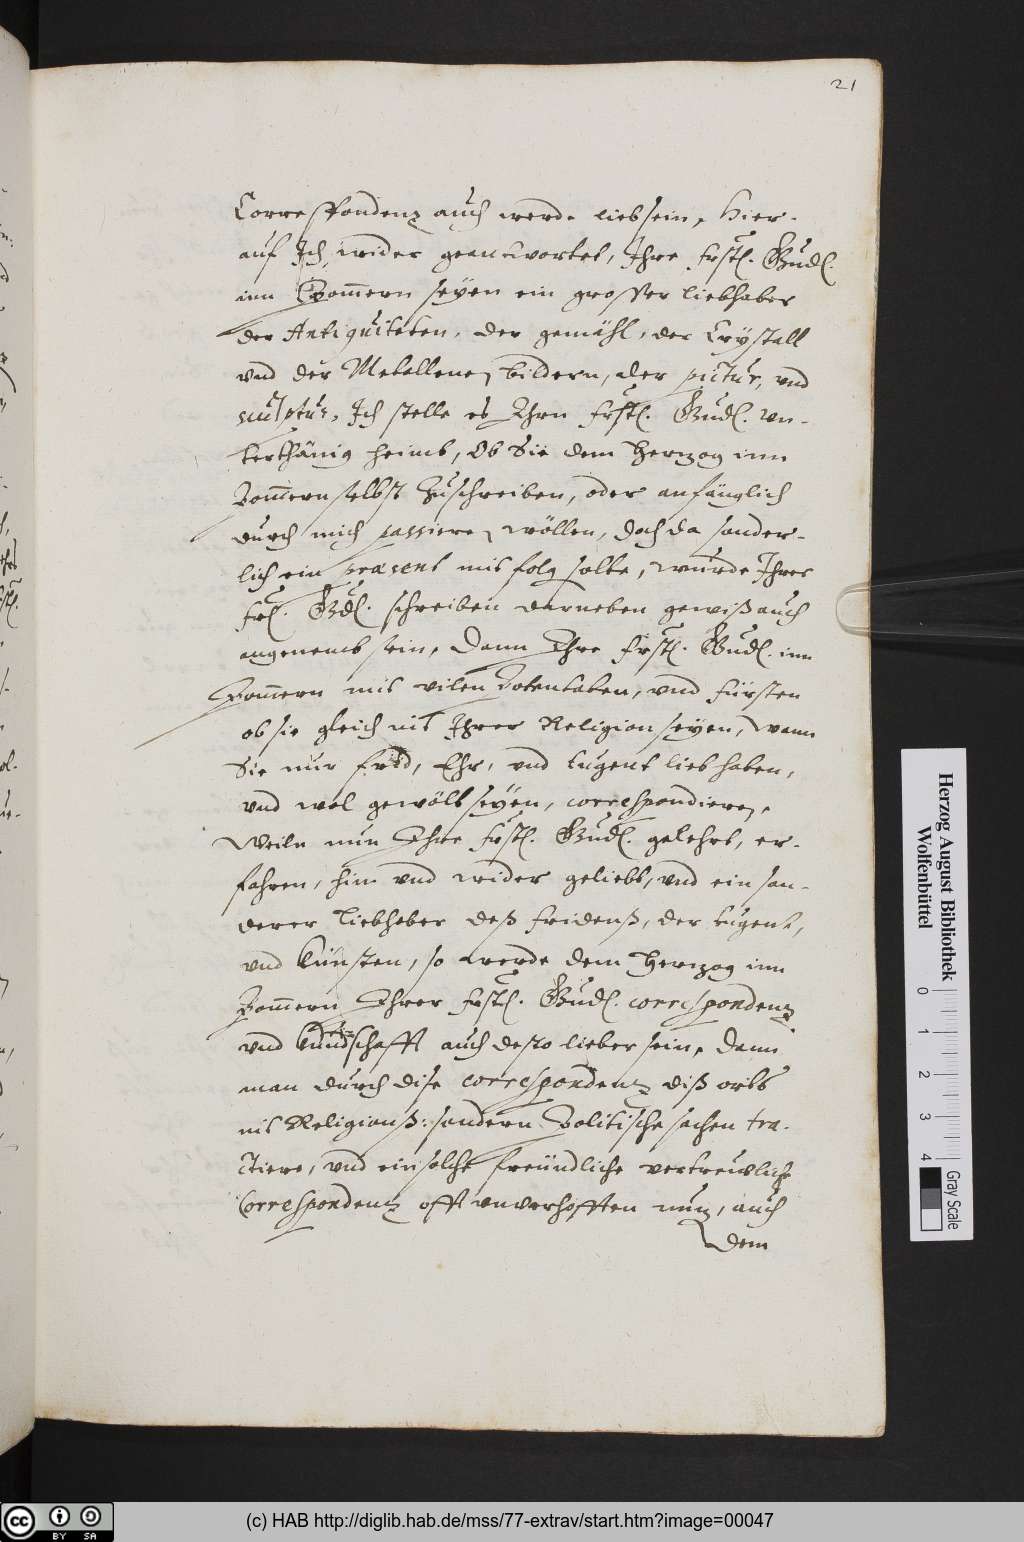 21
Correspondenz auch werde lieb sein, Hier-
auf Ich wider geantwortet, Ihre frstl. Gnd.
inn Pom̄ern seyen ein grosser liebhaber
der Antiquiteten, der gemähl, der Crystall
vnd der Metallenen bildern, der pictur, vnd
sculptur, Ich stelle es Ihrn frstl. Gnd. vn-
terthänig heimb, Ob Sie dem Hertzog inn
Pom̄ern selbst zuschreiben, oder anfänglich
durch mich passieren wöllen, doch da sonder-
lich ein praesent mit folg solte, wurde Ihrer
frl. Gd. schreiben darneben gewiß auch
angenemb sein, Dann Ihre frstl. Gnd. inn
Pom̄ern mit vilen Potentaten, vnd fürsten
ob sie gleich nit Ihrer Religion seyen, wann
Sie nur frid, Ehr, vnd tugent lieb haben,
vnd wol gewölt seyen, correspondieren,
Weiln nun Ihre frstl. Gnd. gelehrt, er-
fahren, hin vnd wider geliebt, vnd ein son-
derer liebhaber deß fridenß, der tugent,
vnd künsten, so werde dem Hertzog inn
Pom̄ern Ihrer frstl. Gnd. correspondenz
vnd kundschafft auch desto lieber sein, Dann
man durch dise correspondenz diß orts
nit Religionß: sondern Politische sachen tra-
ctiere, vnd ein solche freündliche vertreuliche
Correspondentz offt vnverhofften nutz, auch
dem
Herzog August Bibliothek
Wolfenbüttel
0 1 2 3 4
Gray Scale
cc BY SA
(c) HAB http://diglib.hab.de/mss/77-extrav/start.htm?image=00047